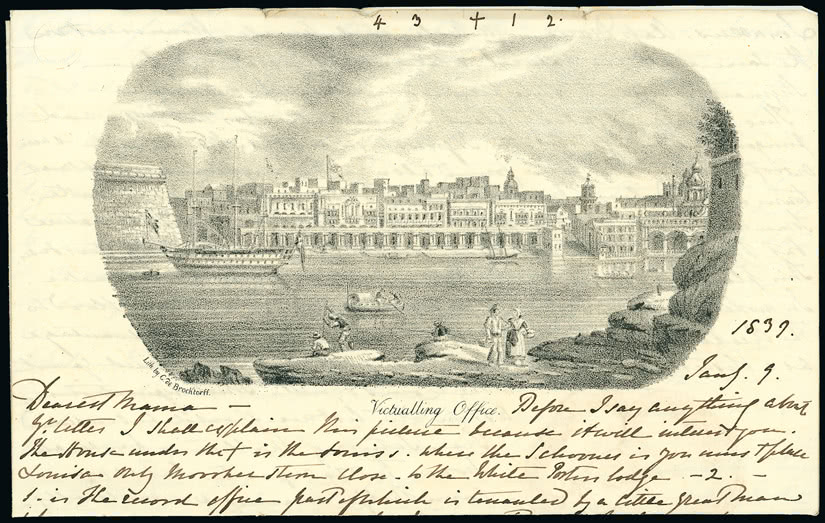 4 3 + 1 2.
1839.
Jany. 9.
Lith by C. de Brocktorff.
Victualling Office.
Dearest Mama — Before I say anything about
yr. letter I shall explain this picture because it will interest you.
The House under the + is the where the Schooner is you must place
Louisa only close to the White Porters lodge — 2. —
1. is the record office part of which is tenanted by a little great man